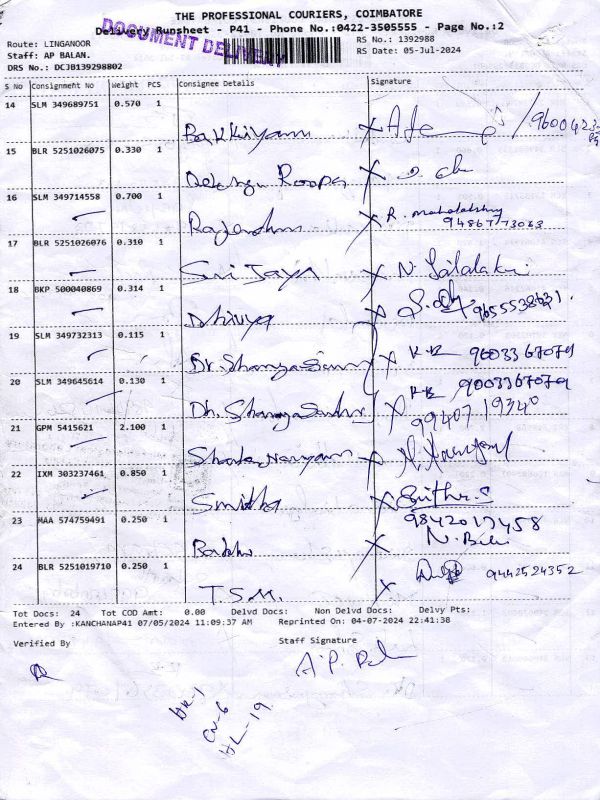 THE PROFESSIONAL COURIERS, COIMBATORE
Delivery Runsheet - P41 - Phone No.:0422-3505555 - Page No.:2
DOCUMENT DELIVERY
Route: LINGANOOR
RS No.: 1392988
Staff: AP BALAN.
RS Date: 05-Jul-2024
DRS No.: DCJB139298802
S No Consignment No Weight PCS Consignee Details Signature
14 SLM 349689751 0.570 1
Bakkiyam
15 BLR 5251026075 0.330 1
Roopa
16 SLM 349714558 0.700 1
R. mahalakshmy
Rajendran 9486773063
17 BLR 5251026076 0.310 1
Sri Jaya N.
18 BKP 500040869 0.314 1
Dhivya 9655538631.
19 SLM 349732313 0.115 1
Dr. K.R 9003367079
20 SLM 349645614 0.130 1
K.R 9003367079
Dh. 9940719340
21 GPM 5415621 2.100 1
22 IXM 303237461 0.850 1
Smitha
9842017458
23 MAA 574759491 0.250 1
N.
24 BLR 5251019710 0.250 1
9442524352
T.S.M.
Tot Docs: 24 Tot COD Amt: 0.00 Delvd Docs: Non Delvd Docs: Delvy Pts:
Entered By :KANCHANAP41 07/05/2024 11:09:37 AM Reprinted On: 04-07-2024 22:41:38
Verified By Staff Signature
A.P.